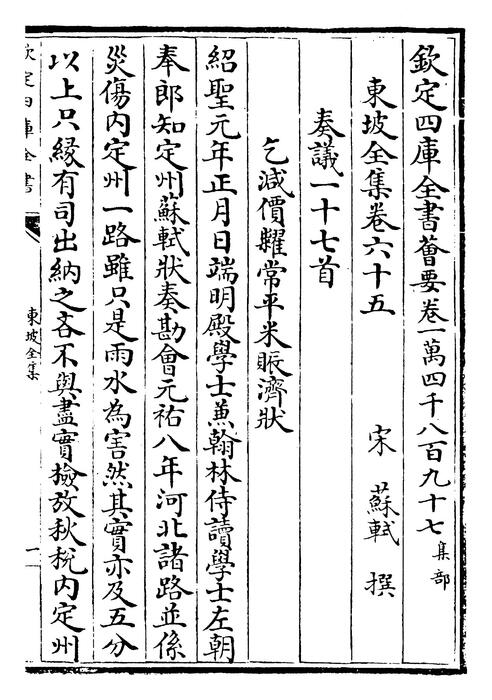 欽定四庫全書薈要卷一萬四千八百九十七集部
東坡全集卷六十五
宋 蘇軾 撰
奏議一十七首
乞減價糶常平米賑濟狀
紹聖元年正月日端明殿學士兼翰林侍讀學士左朝
奉郎知定州蘇軾狀奏勘會元祐八年河北諸路並係
災傷内定州一路雖只是雨水為害然其實亦及五分
以上只緣有司出納之吝不與盡實撿放秋稅内定州
欽定四庫全書
東坡全集
一